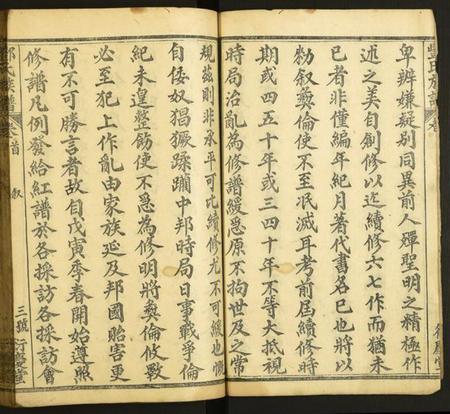 卑辨嫌疑別同異前人殫聖明之精極作
述之美自創修以迄續修六七作而猶未
已者非僅編年紀月著代書名已也將以
勑叙彝倫使不至泯滅耳考前屆續修時
期或四五十年或三四十年不等大抵視
時局治亂為修譜緩急原不拘世及之常
規茲則非承平可比續修尤不可緩也慨
自倭奴猖獗蹂躪中邦時局日事戰爭倫
紀未遑整飭使不急為修明將彝倫攸斁
必至犯上作亂由家族延及邦國貽害更
有不可勝言者故自戊寅季春開始遵照
修譜凡例發給紅譜於各採訪各採訪會
氏族譜
卷首
叙
三號